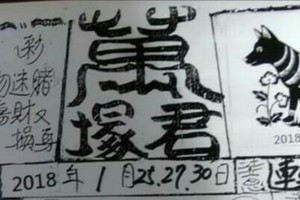 彩
勿迷賭
財又
損身
萬
塚君
2018
2018年1月25.27.30日
連